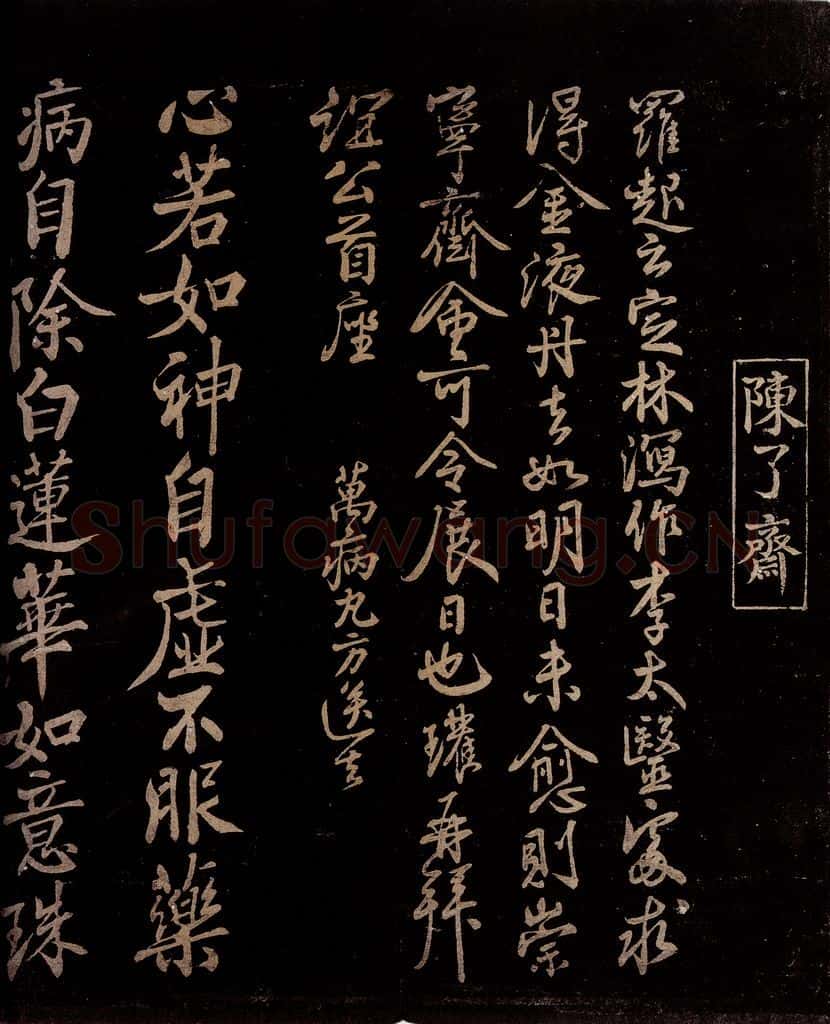 陳了齋
羅起云定林瀉作李太醫處求
得金液丹去如明日未愈則崇
寧齋會可令展日也瓘再拜
誼公首座　萬病丸方送去
心若如神自虛不服藥
病自除白蓮華如意珠
Shufawang.CN